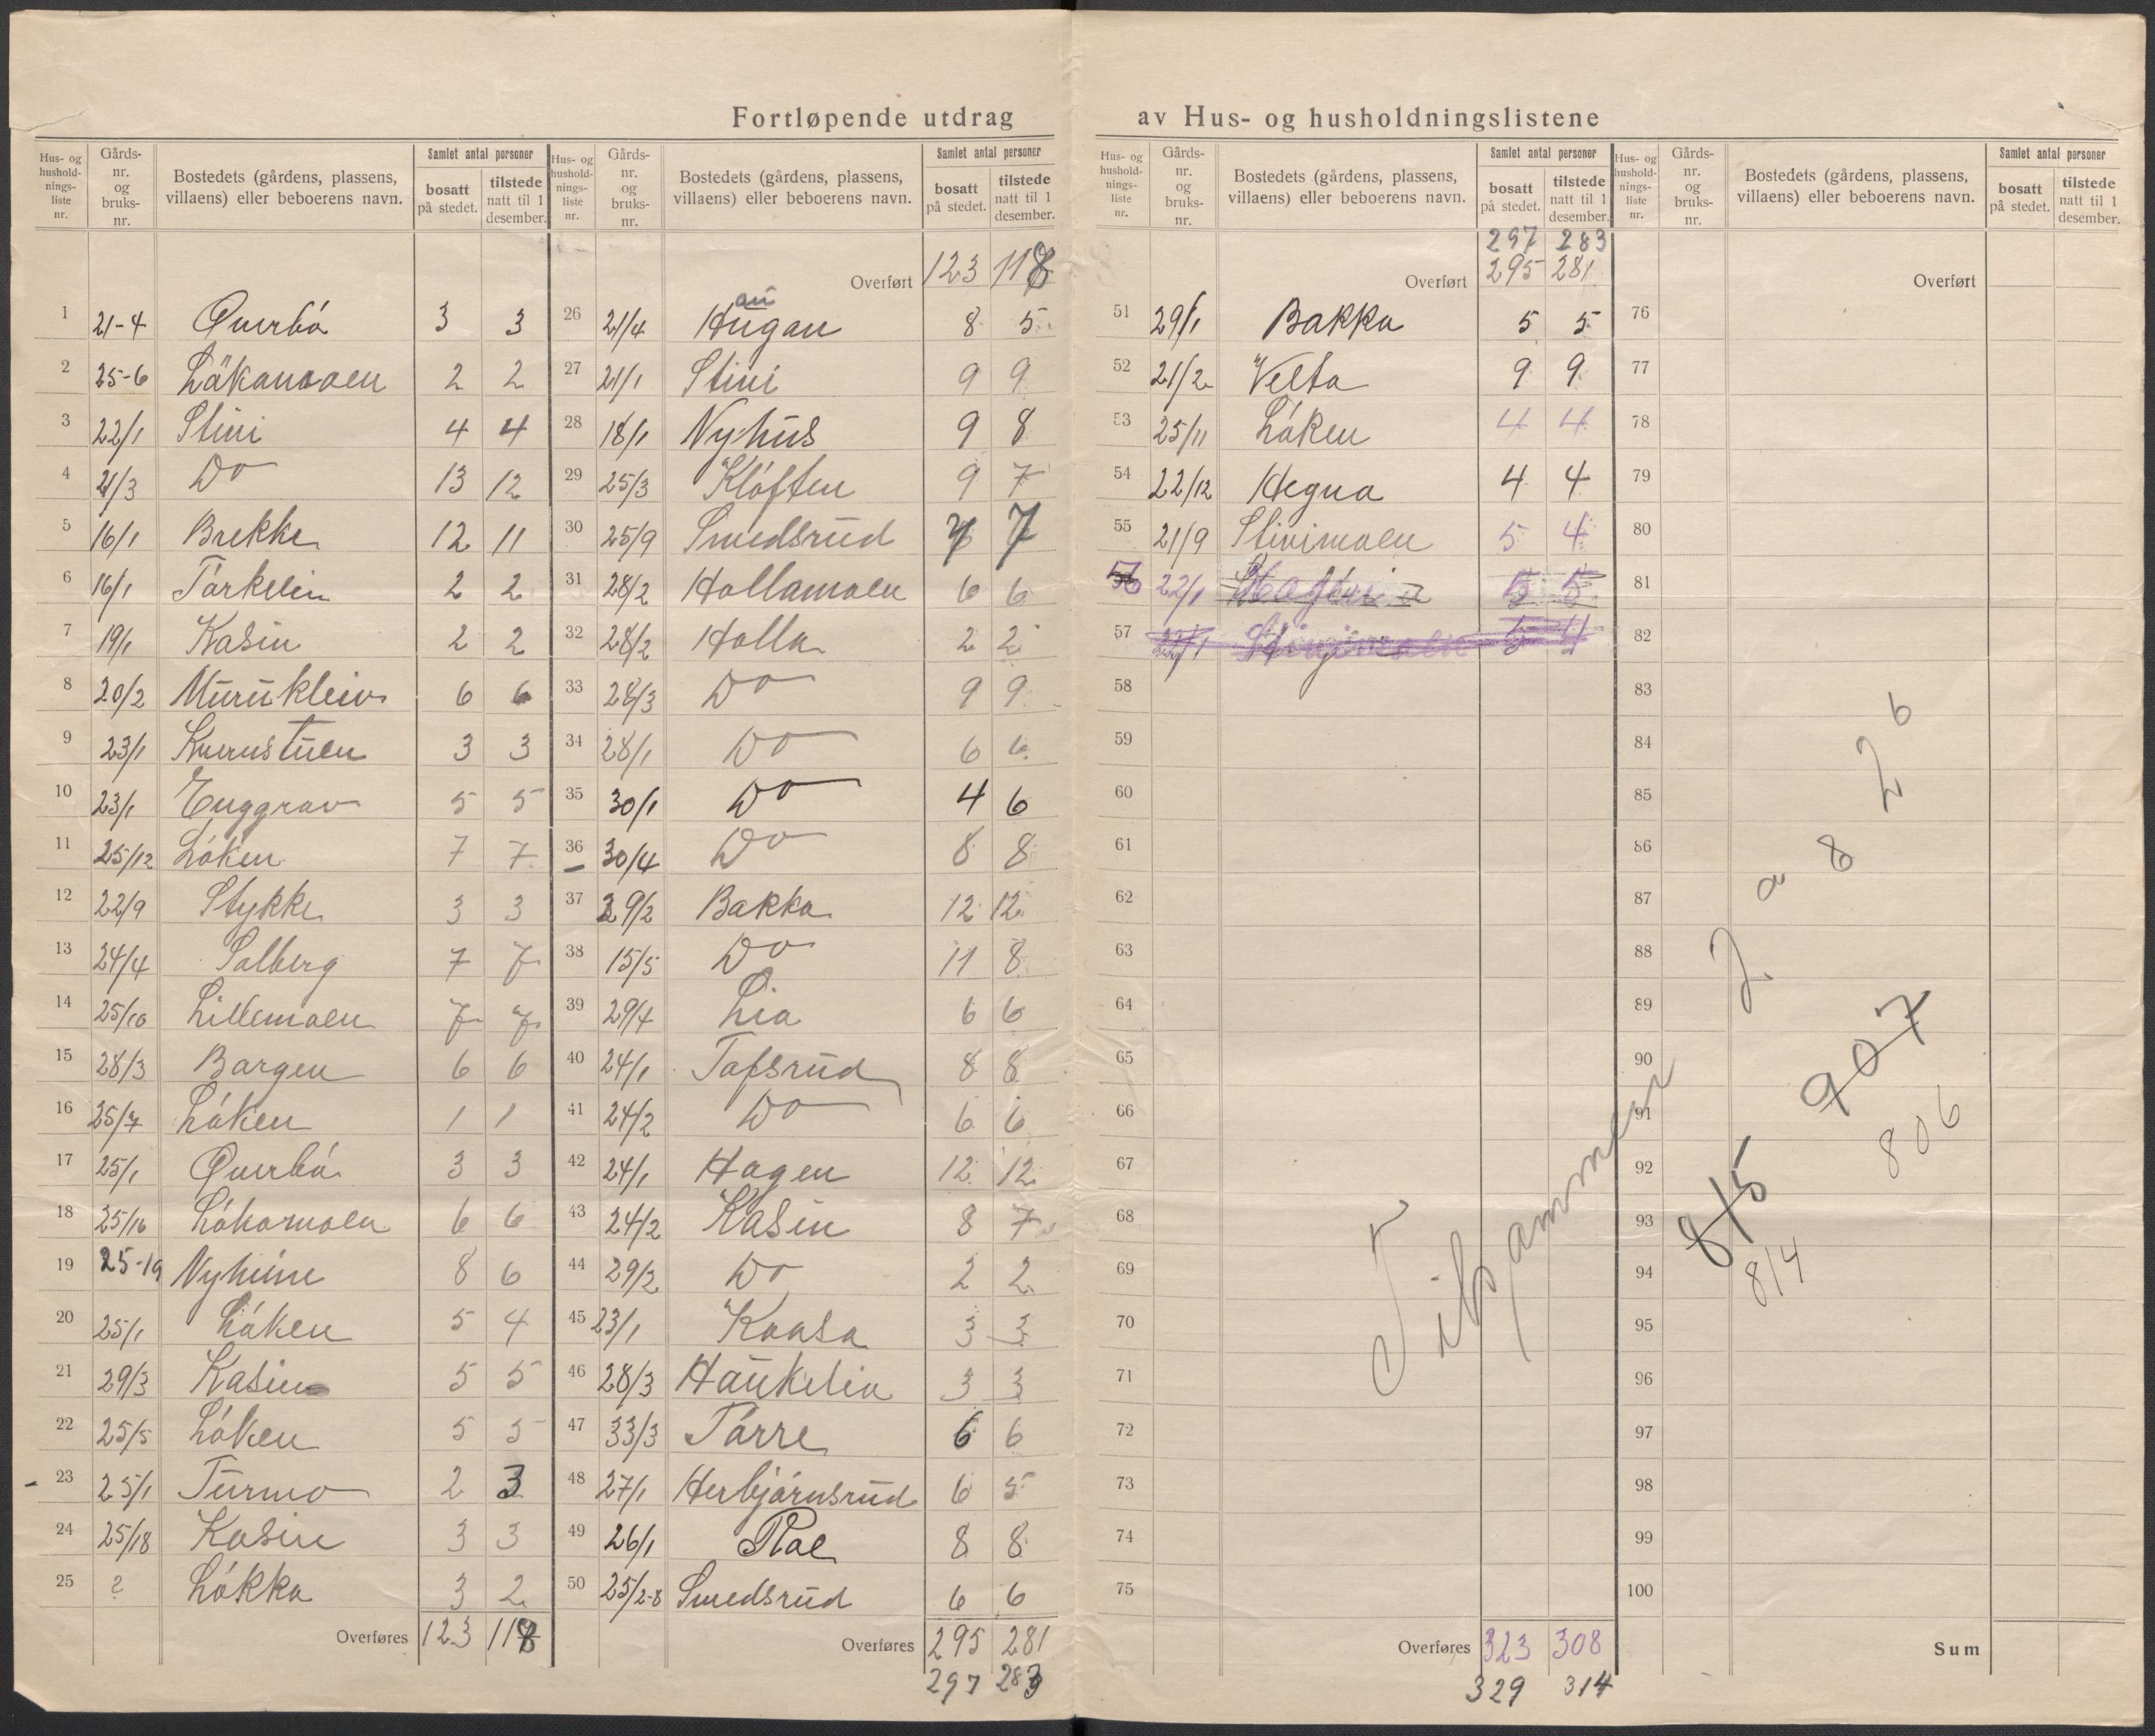 Fortløpende utdrag av Hus- og husholdningslistene
Hus- og husholdnings-liste nr. Gårds-nr. og bruks-nr. Bostedets (gårdens, plassens, villaens) eller beboerens navn. Samlet antal personer bosatt på stedet. tilstede natt til 1 desember.
1 21-4 Överbö 3 3
2 25-6 Lökamoen 2 2
3 22/1 Stivi 4 4
4 21/3 Do 13 12
5 16/1 Brekke 12 11
6 16/1 Torkelin 2 2
7 19/1 Kasin 2 2
8 20/2 Murukleiv 6 6
9 23/1 Kvernstuen 3 3
10 23/1 Enggrav 5 5
11 25/12 Löken 7 7
12 22/9 Stykke 3 3
13 24/4 Solberg 7 7
14 25/10 Lillemoen 7 7
15 28/3 Bergen 6 6
16 25/7 Löken 1 1
17 25/1 Överbö 3 3
18 25/16 Lökamoen 6 6
19 25-19 8 6
20 25/1 Löken 5 4
21 29/3 Kasin 5 5
22 25/5 Löken 5 5
23 25/1 Turmo 2 3
24 25/18 Kasin 3 3
25 ? Lökka 3 2
Overføres 123 118
Hus- og husholdnings-liste nr. Gårds-nr. og bruks-nr. Bostedets (gårdens, plassens, villaens) eller beboerens navn. Samlet antal personer bosatt på stedet. tilstede natt til 1 desember.
Overført 123 118
au
26 21/4 Haugan 8 5
27 21/1 Stivi 9 9
28 18/1 Nyhus 9 8
29 25/3 Klöften 9 7
30 25/9 Smedsrud 7 7
31 28/2 Hollamoen 6 6
32 28/2 Holla 2 2
33 28/3 Do 9 9
34 28/1 Do 6 6
35 30/1 Do 4 6
36 30/4 Do 8 8
37 29/2 Bakka 12 12
38 15/5 Do 11 8
39 29/4 Lia 6 6
40 24/1 Tofsrud 8 8
41 24/2 Do 6 6
42 24/1 Hagen 12 12
43 24/2 Kasin 8 7
44 29/2 Do 2 2
45 23/1 Kaasa 3 3
46 28/3 Haukelia 3 3
47 33/3 Torre 6 6
48 27/1 Herbjörnsrud 6 5
49 26/1 Roe 8 8
50 25/2-8 Smedsrud 6 6
Overføres 295 281
297 283
Hus- og husholdnings-liste nr. Gårds-nr. og bruks-nr. Bostedets (gårdens, plassens, villaens) eller beboerens navn. Samlet antal personer bosatt på stedet. tilstede natt til 1 desember.
297 283
Overført 295 281
51 29/1 Bakka 5 5
52 21/2 Velta 9 9
53 25/11 Löken 4 4
54 22/12 Hegna 4 4
55 21/9 Stivimoen 5 4
56 22/1 5 5
57 22/1 5 4
58
59
60
61
62
63
64
65
66
67
68
69
70
71
72
73
74
75
Overføres 323 308
329 314
Hus- og husholdnings-liste nr. Gårds-nr. og bruks-nr. Bostedets (gårdens, plassens, villaens) eller beboerens navn. Samlet antal personer bosatt på stedet. tilstede natt til 1 desember.
Overført
76
77
78
79
80
81
82
83
84
85
86
87
88
89
90
91
92
93
94
95
96
97
98
99
100
Sum
Tilsammen
815 907
814 806